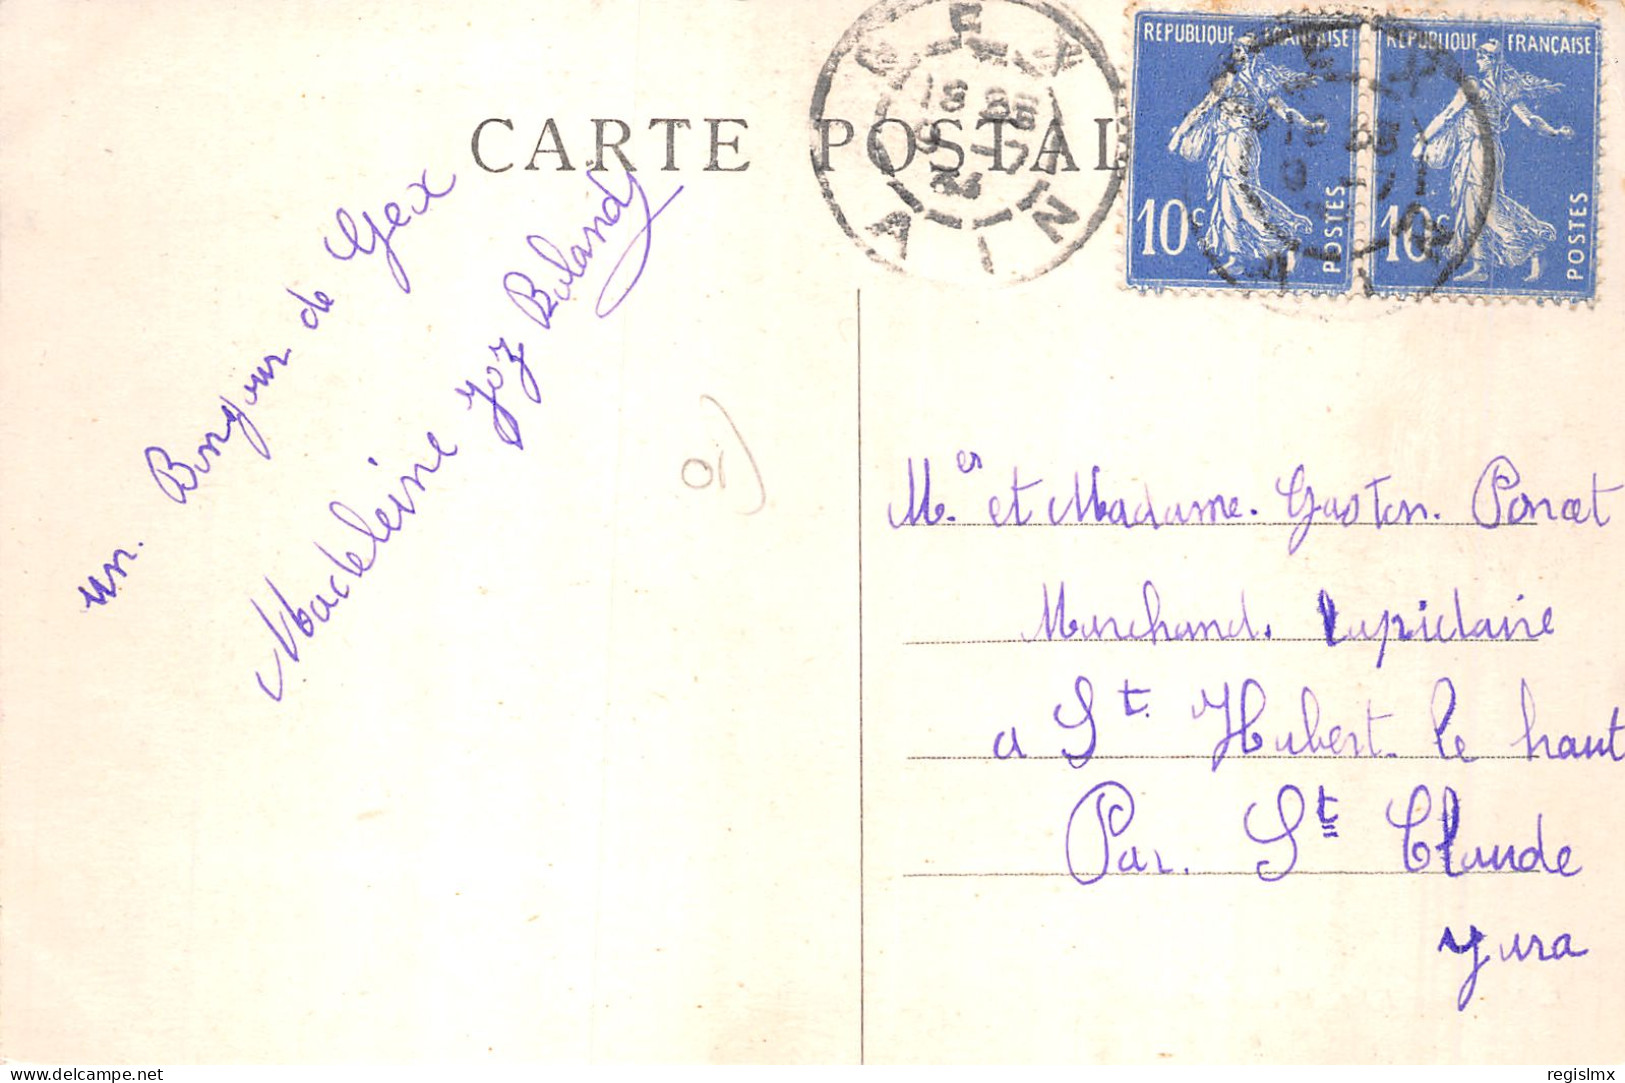 CARTE POSTAL
GEX
AIN
REPUBLIQUE FRANÇAISE
10c
POSTES
REPUBLIQUE FRANÇAISE
10c
POSTES
un. Bonjour de Gex
Madeleine Boland
01)
Mer. et Madame. Gaston. Poncet
Marchand. Lapidaire
a St. Hubert. le haut
Par. St Claude
Jura
www.delcampe.net
regislmx